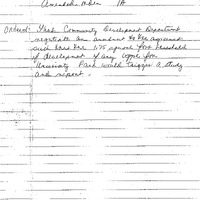 Amended Order 1A
Ordered: That Community Development Department
negotiate an amendment to the agreement
such that the 1.75 square foot threshold
of development of any type for
University Park would trigger a study
and report.